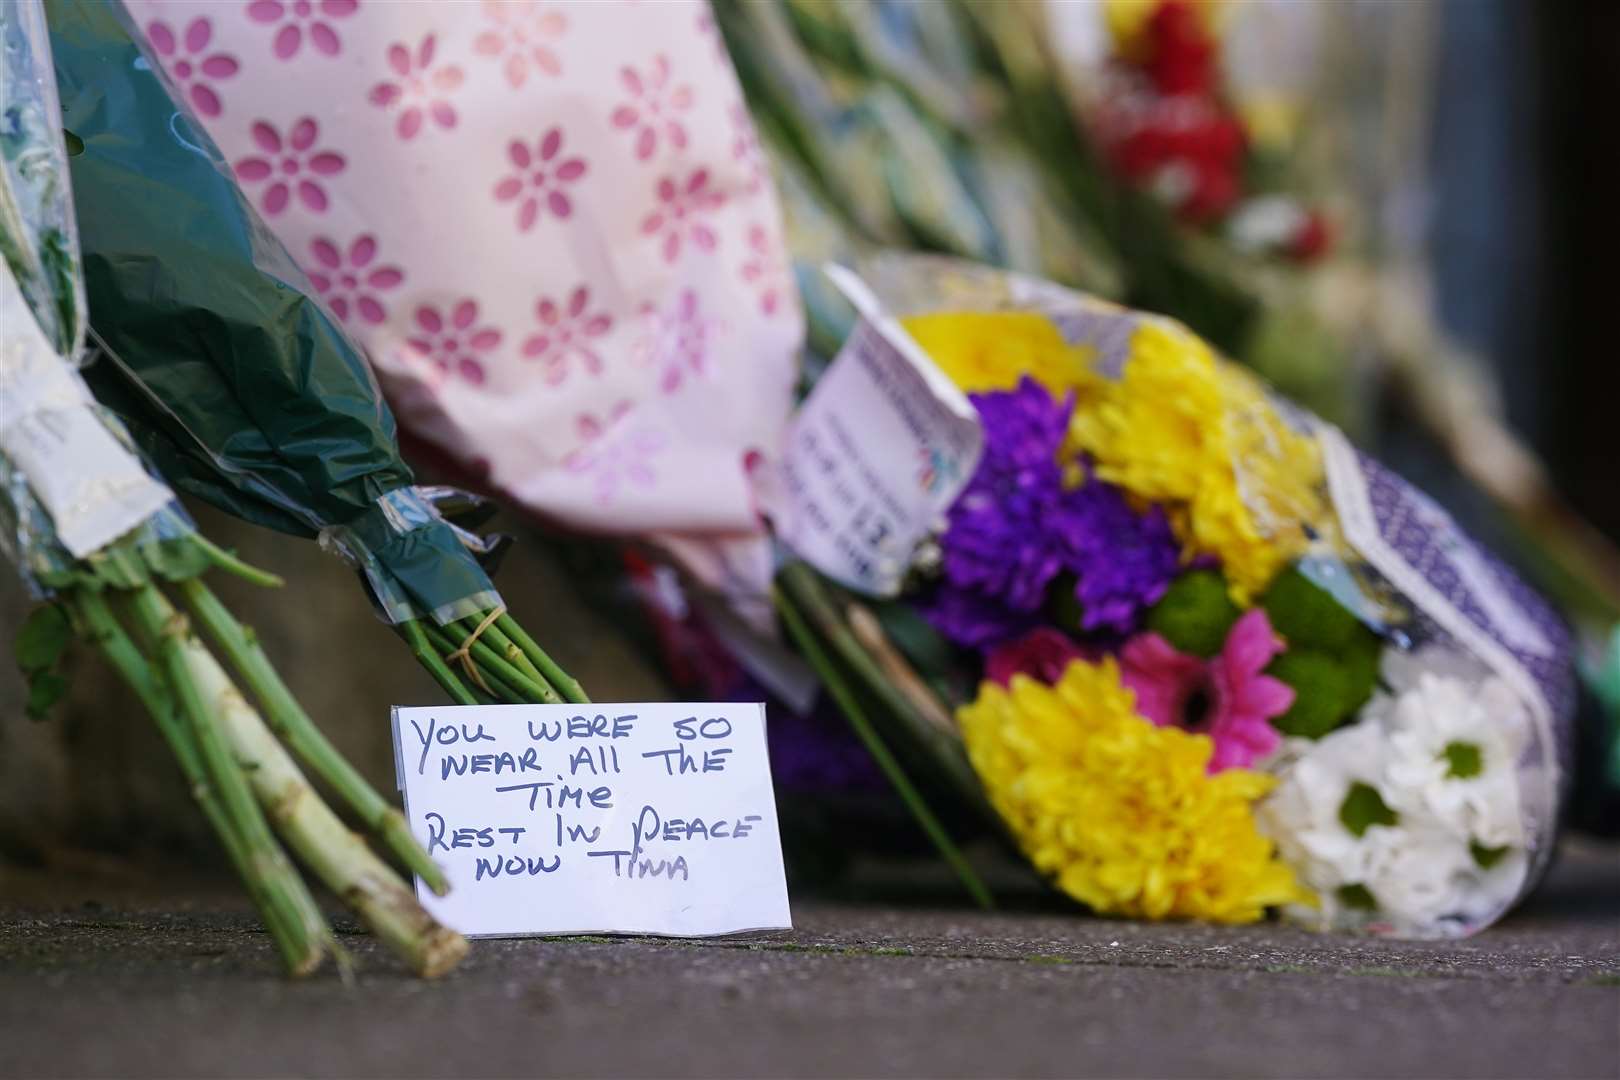 YOU WERE SO
NEAR All THE
TIME
REST IN PEACE
NOW TINA